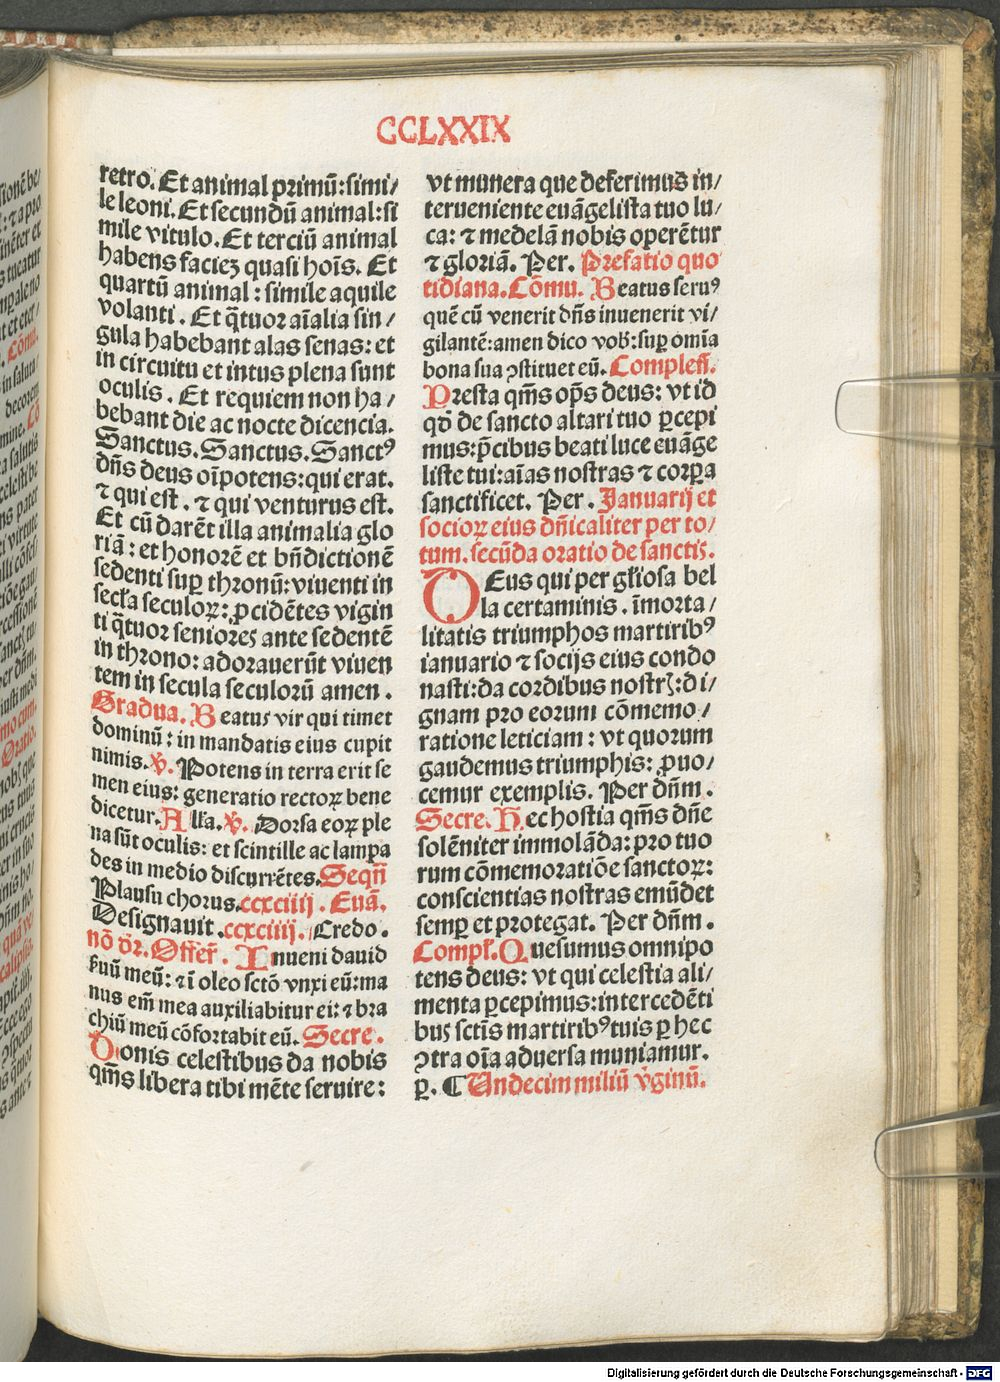 CCLXXIX
retro. Et animal primū: simi/
le leoni. Et secundū animal: si
mile vitulo. Et terciū animal
habens facieʒ quasi hoīs. Et
quartū animal: simile aquile
volanti. Et q̄tuor aīalia sin/
gula habebant alas senas: et
in circuitu et intus plena sunt
oculis. Et requiem non ha/
bebant die ac nocte dicencia.
Sanctus. Sanctus. Sanctꝰ
dn̄s deus oīpotens: qui erat.
⁊ qui est. ⁊ qui venturus est.
Et cū darēt illa animalia glo
riā: et honorē et bn̄dictionē
sedenti suꝑ thronū: viuenti in
secl̄a seculoꝝ: ꝓcidētes vigin
ti q̄tuor seniores ante sedentē
in throno: adorauerūt viuen
tem in secula seculorū amen.
Gradua. Beatus vir qui timet
dominū: in mandatis eius cupit
nimis. ℣. Potens in terra erit se
men eius: generatio rectoꝝ bene
dicetur. All'a. ℣. Dorsa eoꝝ ple
na sūt oculis: et scintille ac lampa
des in medio discurrētes. Seqn̄
Plausu chorus. ccxciiij. Euā.
Designauit. ccxciiij. Credo.
nō dr̄. Offer̄. Inueni dauid
ẜuū meū: ⁊ ī oleo sctō vnxi eū: ma
nus em̄ mea auxiliabitur ei: ⁊ bra
chiū meū cōfortabit eū. Secre.
Donis celestibus da nobis
qm̄s libera tibi mēte seruire:
vt munera que deferimus in/
terueniente euāgelista tuo lu/
ca: ⁊ medelā nobis operētur
⁊ gloriā. Per. Prefatio quo
tidiana. Cōmu. Beatus seruꝰ
quē cū venerit dn̄s inuenerit vi/
gilantē: amen dico vob̄: suꝑ omīa
bona sua ꝯstituet eū. Compleñ.
Presta qm̄s op̄s deus: vt id
qd̄ de sancto altari tuo ꝑcepi
mus: p̄cibus beati luce euāge
liste tui: aīas nostras ⁊ corꝑa
sanctificet. Per. Januarij et
socioꝝ eius dn̄icaliter per to/
tum. secūda oratio de sanctis.
DEus qui per gl'iosa bel
la certaminis. īmorta/
litatis triumphos martiribꝰ
ianuario ⁊ socijs eius condo
nasti: da cordibus nostrꝭ: di/
gnam pro eorum cōmemo/
ratione leticiam: vt quorum
gaudemus triumphis: ꝓuo/
cemur exemplis. Per dn̄m.
Secre. Hec hostia qm̄s dn̄e
solēniter immolāda: pro tuo
rum cōmemoratiōe sanctoꝝ:
conscientias nostras emūdet
semꝑ et protegat. Per dn̄m.
Compl̄. Quesumus omnipo
tens deus: vt qui celestia ali/
menta ꝑcepimus: intercedēti
bus sctīs martiribꝰ tuis ꝑ hec
ꝯtra oīa aduersa muniamur.
ꝑ. ¶ Undecim miliū v̄ginū.
Digitalisierung gefördert durch die Deutsche Forschungsgemeinschaft - DFG